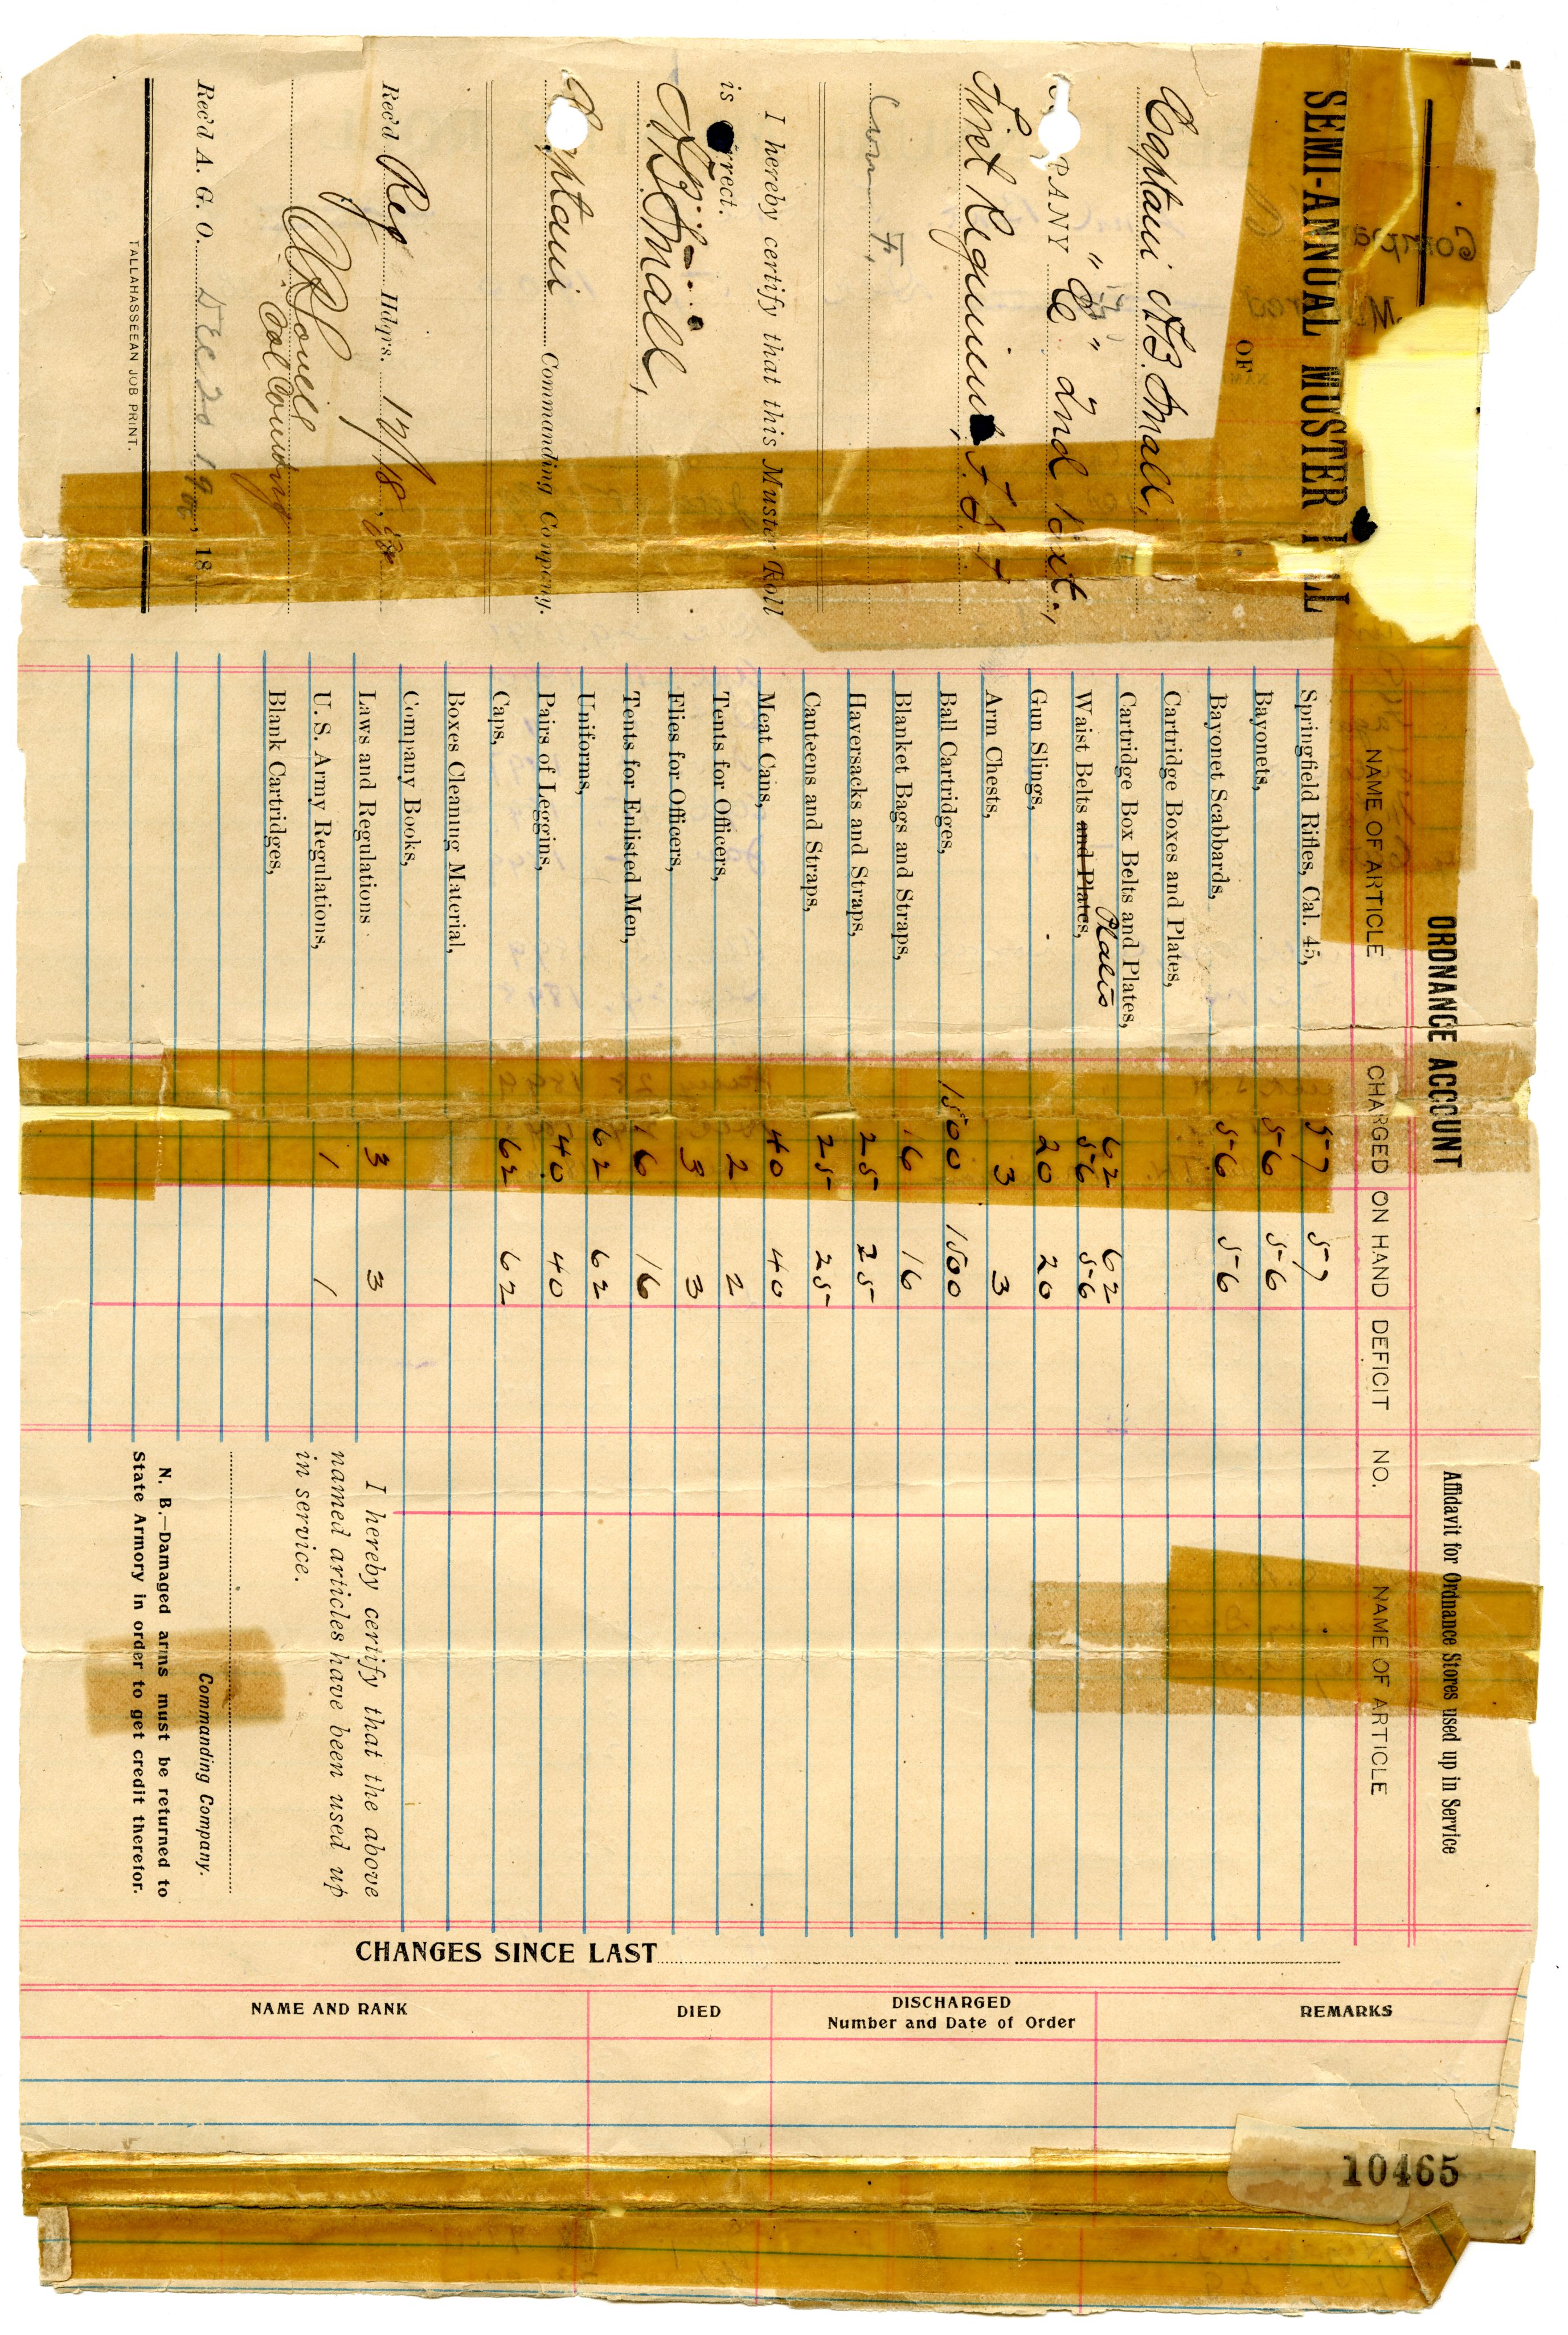 SEMI-ANNUAL MUSTER
OF
Captain A.B. Small,
PANY "C" 2nd Bat.,
First Regiment
I hereby certify that this Muster Roll
is rrect.
A.B. Small,
Captain Commanding Company.
Rec'd Reg Hdqrs. 12/18
Rec'd A. G. O. DEC 20 190 , 18
TALLAHASSEEAN JOB PRINT.
ORDNANCE ACCOUNT
NAME OF ARTICLE CHARGED ON HAND DEFICIT
Springfield Rifles, Cal. 45, 57 57
Bayonets, 56 56
Bayonet Scabbards, 56 56
Cartridge Boxes and Plates,
Cartridge Box Belts and Plates, 62 62
Waist Belts and Plates, Plates 56 56
Gun Slings, 20 20
Arm Chests, 3 3
Ball Cartridges, 1500 1500
Blanket Bags and Straps, 16 16
Haversacks and Straps, 25 25
Canteens and Straps, 25 25
Meat Cans, 40 40
Tents for Officers, 2 2
Flies for Officers, 3 3
Tents for Enlisted Men, 16 16
Uniforms, 62 62
Pairs of Leggins, 40 40
Caps, 62 62
Boxes Cleaning Material,
Company Books,
Laws and Regulations 3 3
U. S. Army Regulations, 1 1
Blank Cartridges,
Affidavit for Ordnance Stores used up in Service
NO. NAME OF ARTICLE
I hereby certify that the above
named articles have been used up
in service.
Commanding Company.
N. B.—Damaged arms must be returned to
State Armory in order to get credit therefor.
CHANGES SINCE LAST
NAME AND RANK DIED DISCHARGED Number and Date of Order REMARKS
10465